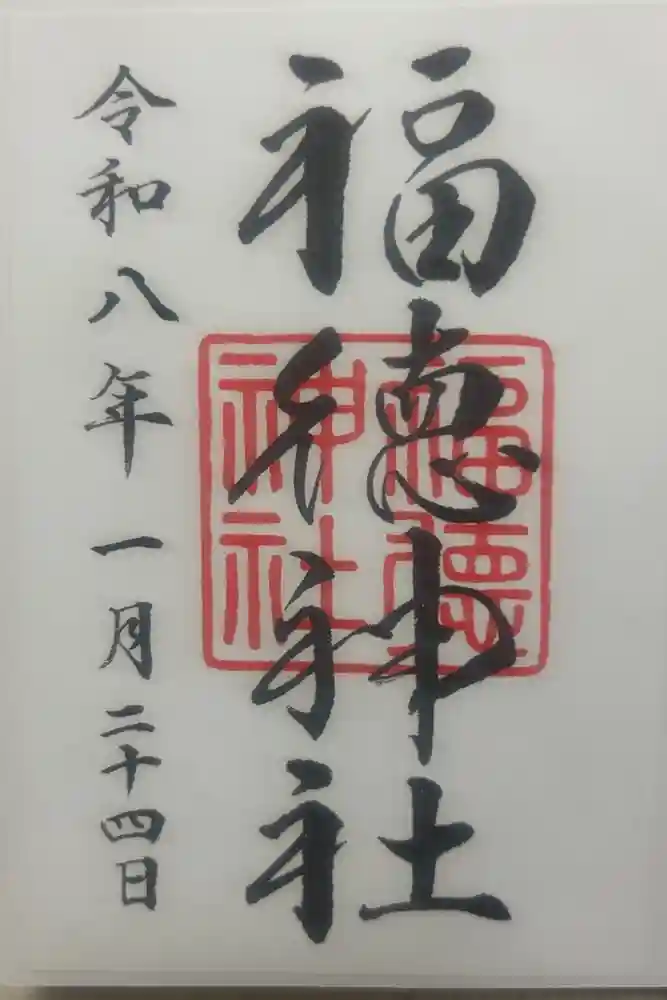 福德神社
福德神社
令和八年一月二十四日